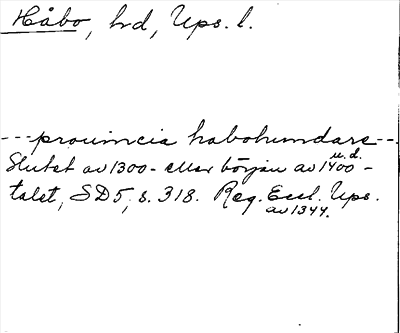 Håbo, hd, Ups. l.
---prouincia habohundare---
u.d.
Slutet av 1300- eller början av 1400-
talet, SD5, s. 318. Reg. Eccl. Ups.
av 1344.